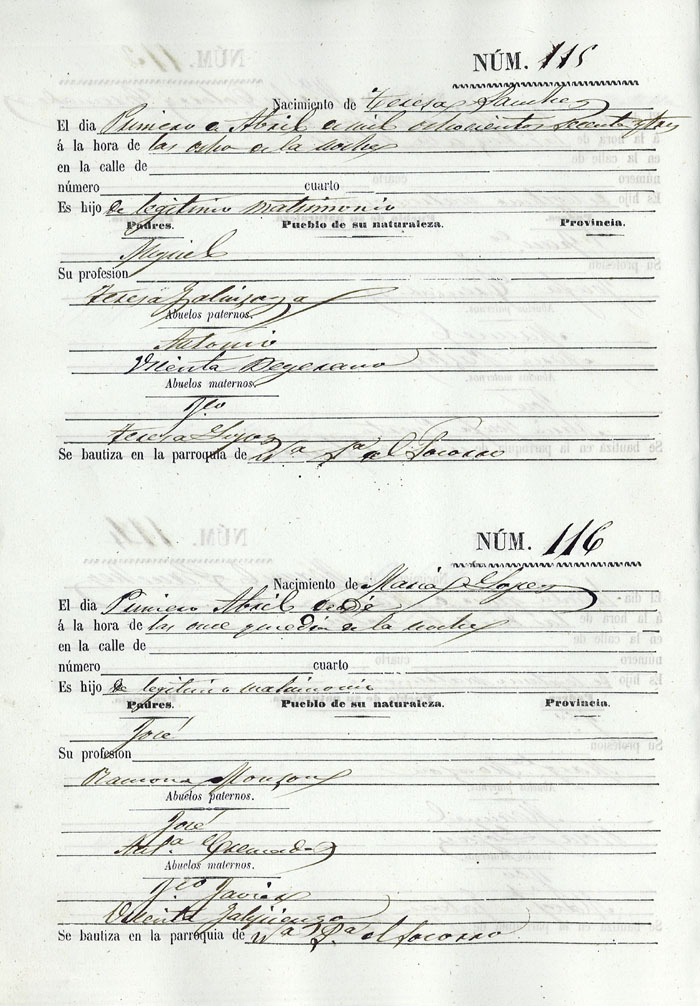 NÚM. 115
Nacimiento de Teresa Sanchez
El dia Primero de Abril de mil ochocientos setenta y tres
á la hora de las ocho de la noche
en la calle de
número cuarto
Es hijo de legitimo matrimonio
Padres. Pueblo de su naturaleza. Provincia.
Miguel
Su profesion
Teresa
Abuelos paternos.
Antonio
Vicenta
Abuelos maternos.
Fco
Teresa Lopez
Se bautiza en la parroquia de Nª Sª del Socorro
NÚM. 116
Nacimiento de Maria Lopez
El dia Primero Abril
á la hora de las once y media de la noche
en la calle de
número cuarto
Es hijo de legitimo matrimonio
Padres. Pueblo de su naturaleza. Provincia.
José
Su profesion
Ramona Monzon
Abuelos paternos.
José
Antª
Abuelos maternos.
Fco Javier
Vicenta
Se bautiza en la parroquia de Nª Sª del Socorro